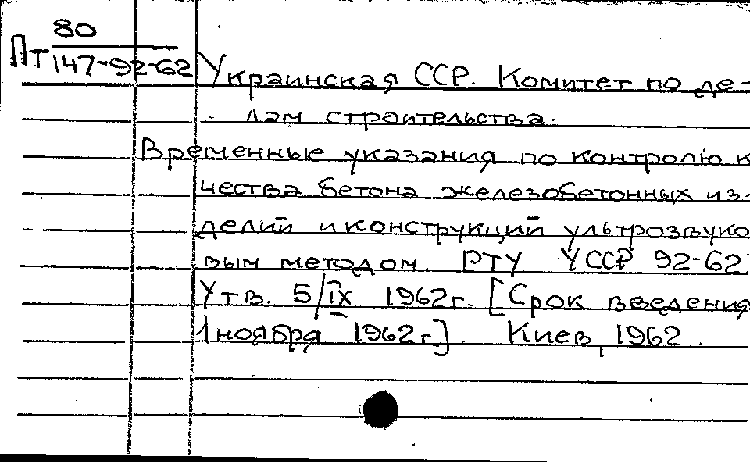 80
Пт 147-92-62
Украинская ССР. Комитет по де-
лам строительства.
Временные указания по контролю к
чества бетона железобетонных из-
делий и конструкций ультразвуко
вым методом. РТУ УССР 92-62
Утв. 5/IX 1962г. [Срок введения
1 ноября 1962г.] Киев, 1962.